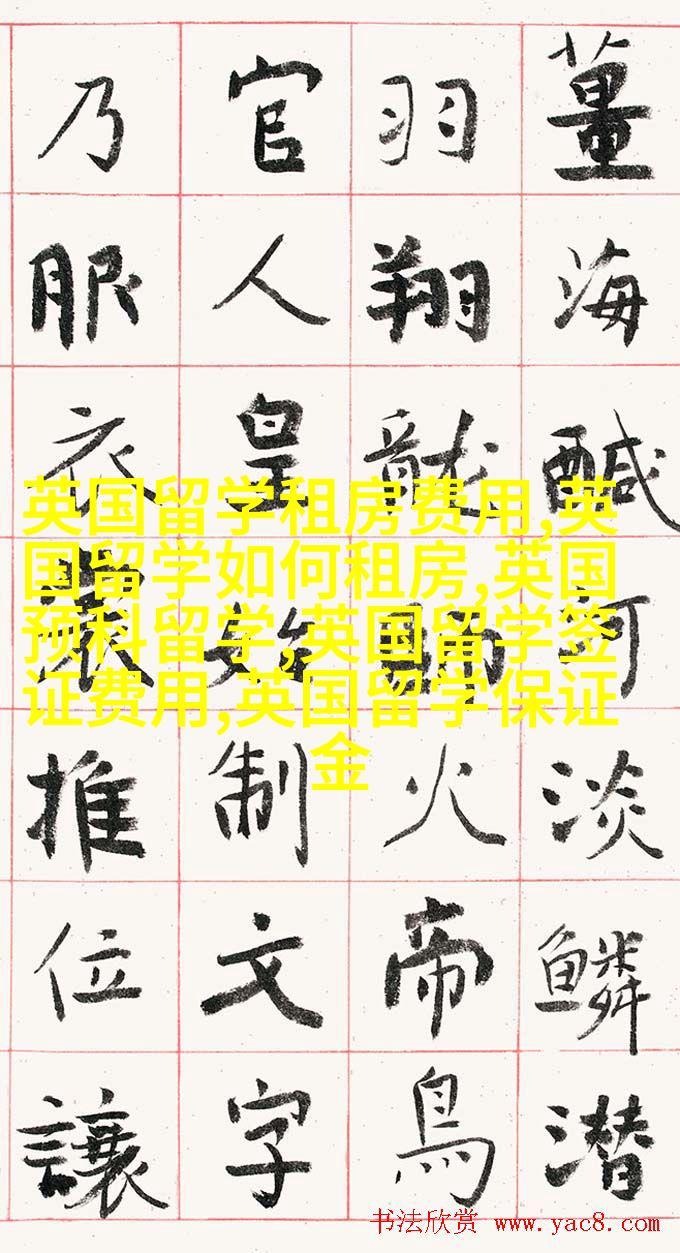 薑海鹹河淡鱗潛
羽翔龍師火帝鳥
官人皇始制文字
乃服衣裳推位讓
英国留学租房费用,英
国留学如何租房,英国
预科留学,英国留学签
证费用,英国留学保证
金
书法欣赏 www.yac8.com